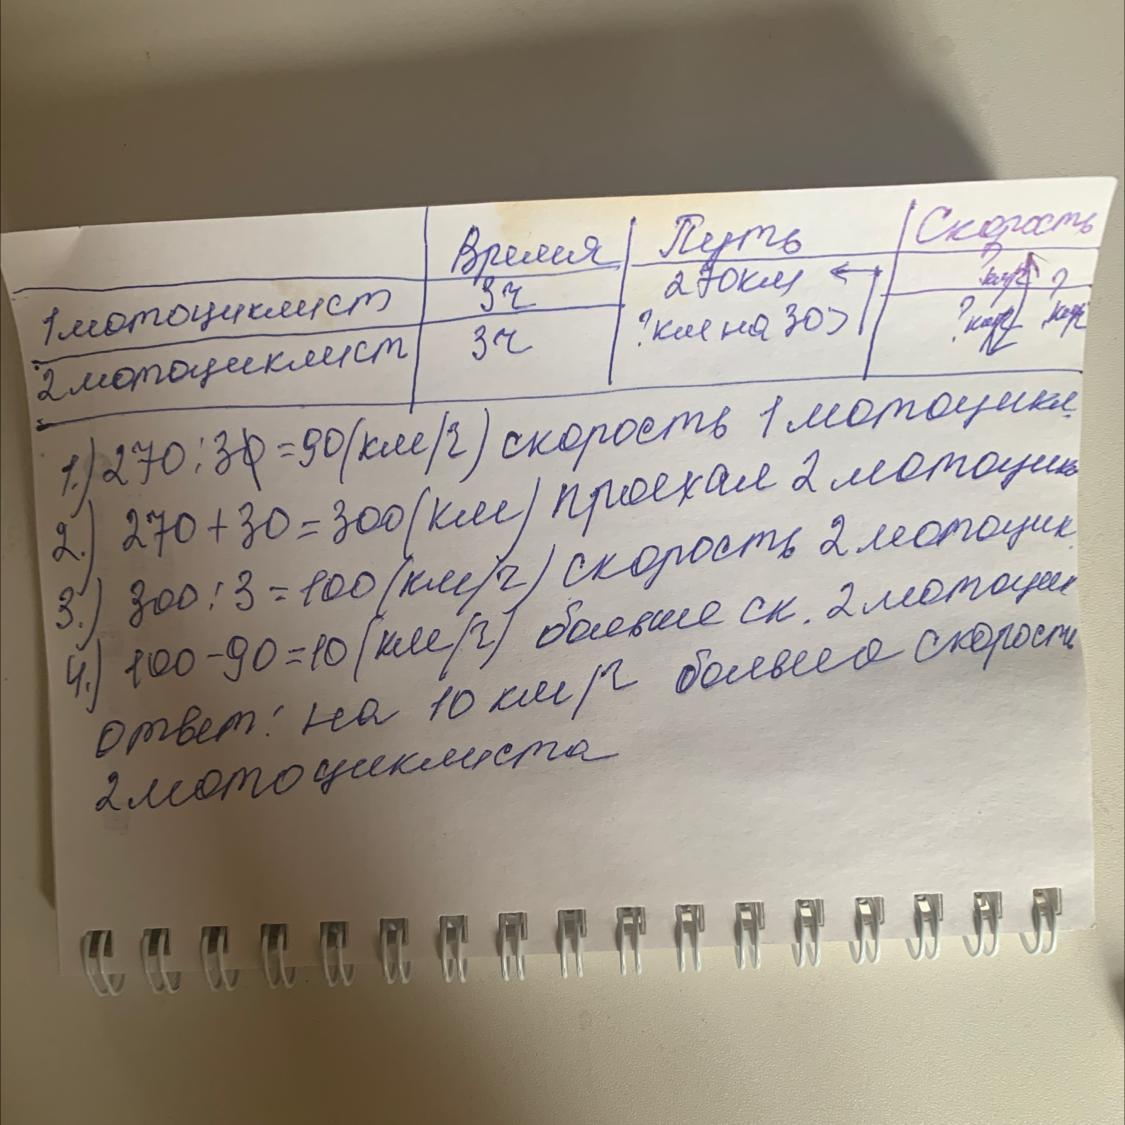 Время Путь Скорость
1 мотоциклист 3ч 270км ?км/ч
2 мотоциклист 3ч ?км на 30> ?км/ч ?км/ч
1.) 270:3=90(км/ч) скорость 1 мотоцикл.
2.) 270+30=300(км) проехал 2 мотоцик
3.) 300:3=100(км/ч) скорость 2 мотоцик.
4.) 100-90=10(км/ч) больше ск. 2 мотоцик
ответ: на 10 км/ч больше скорость
2 мотоциклиста